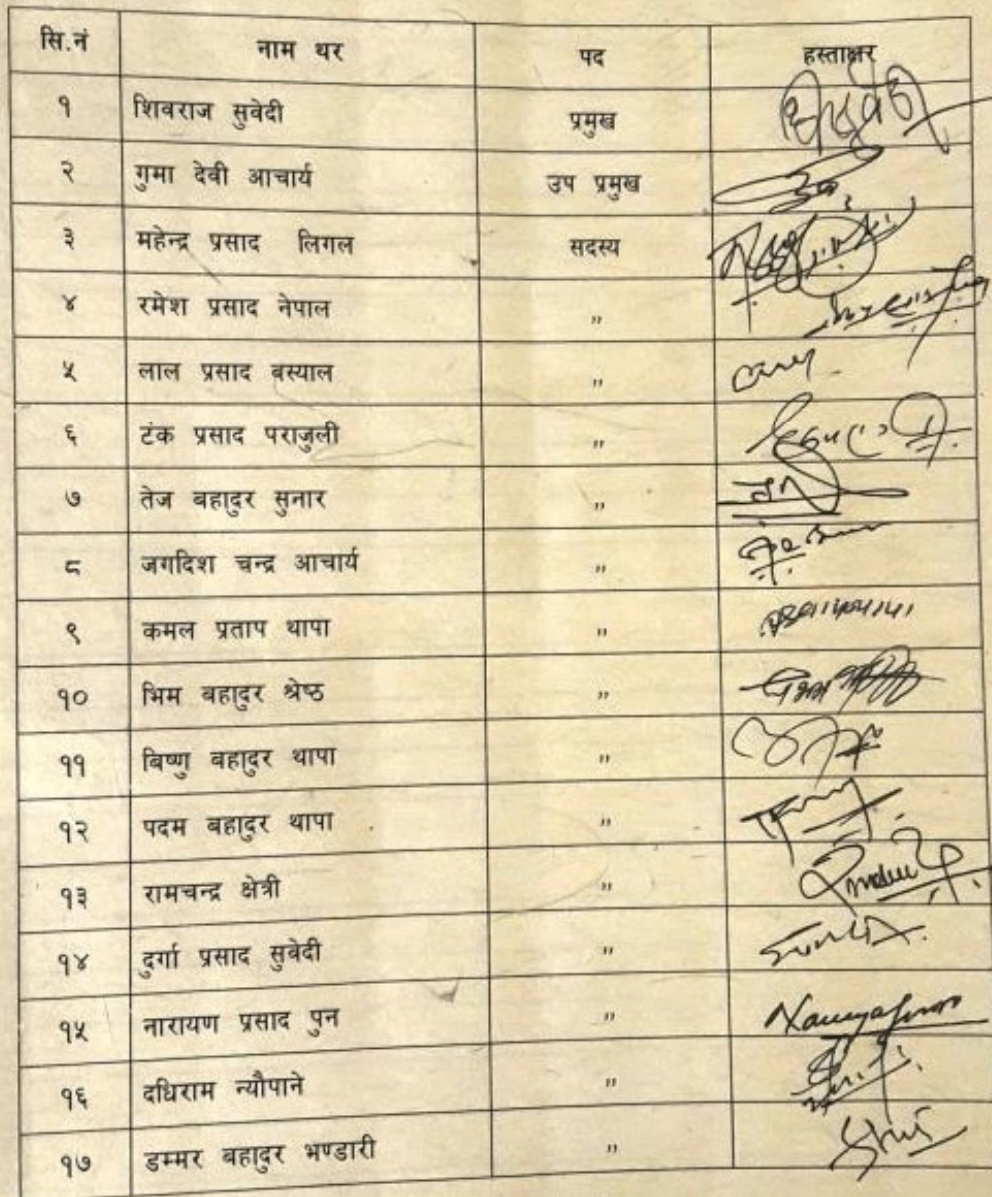 सि.नं नाम थर पद हस्ताक्षर
१ शिवराज सुवेदी प्रमुख
२ गुमा देवी आचार्य उप प्रमुख
३ महेन्द्र प्रसाद लिगल सदस्य
४ रमेश प्रसाद नेपाल ,,
५ लाल प्रसाद बस्याल ,,
६ टंक प्रसाद पराजुली ,,
७ तेज बहादुर सुनार ,,
८ जगदिश चन्द्र आचार्य ,,
९ कमल प्रताप थापा ,,
१० भिम बहादुर श्रेष्ठ ,,
११ बिष्णु बहादुर थापा ,,
१२ पदम बहादुर थापा ,,
१३ रामचन्द्र क्षेत्री ,,
१४ दुर्गा प्रसाद सुवेदी ,,
१५ नारायण प्रसाद पुन ,,
१६ दधिराम न्यौपाने ,,
१७ डम्मर बहादुर भण्डारी ,,